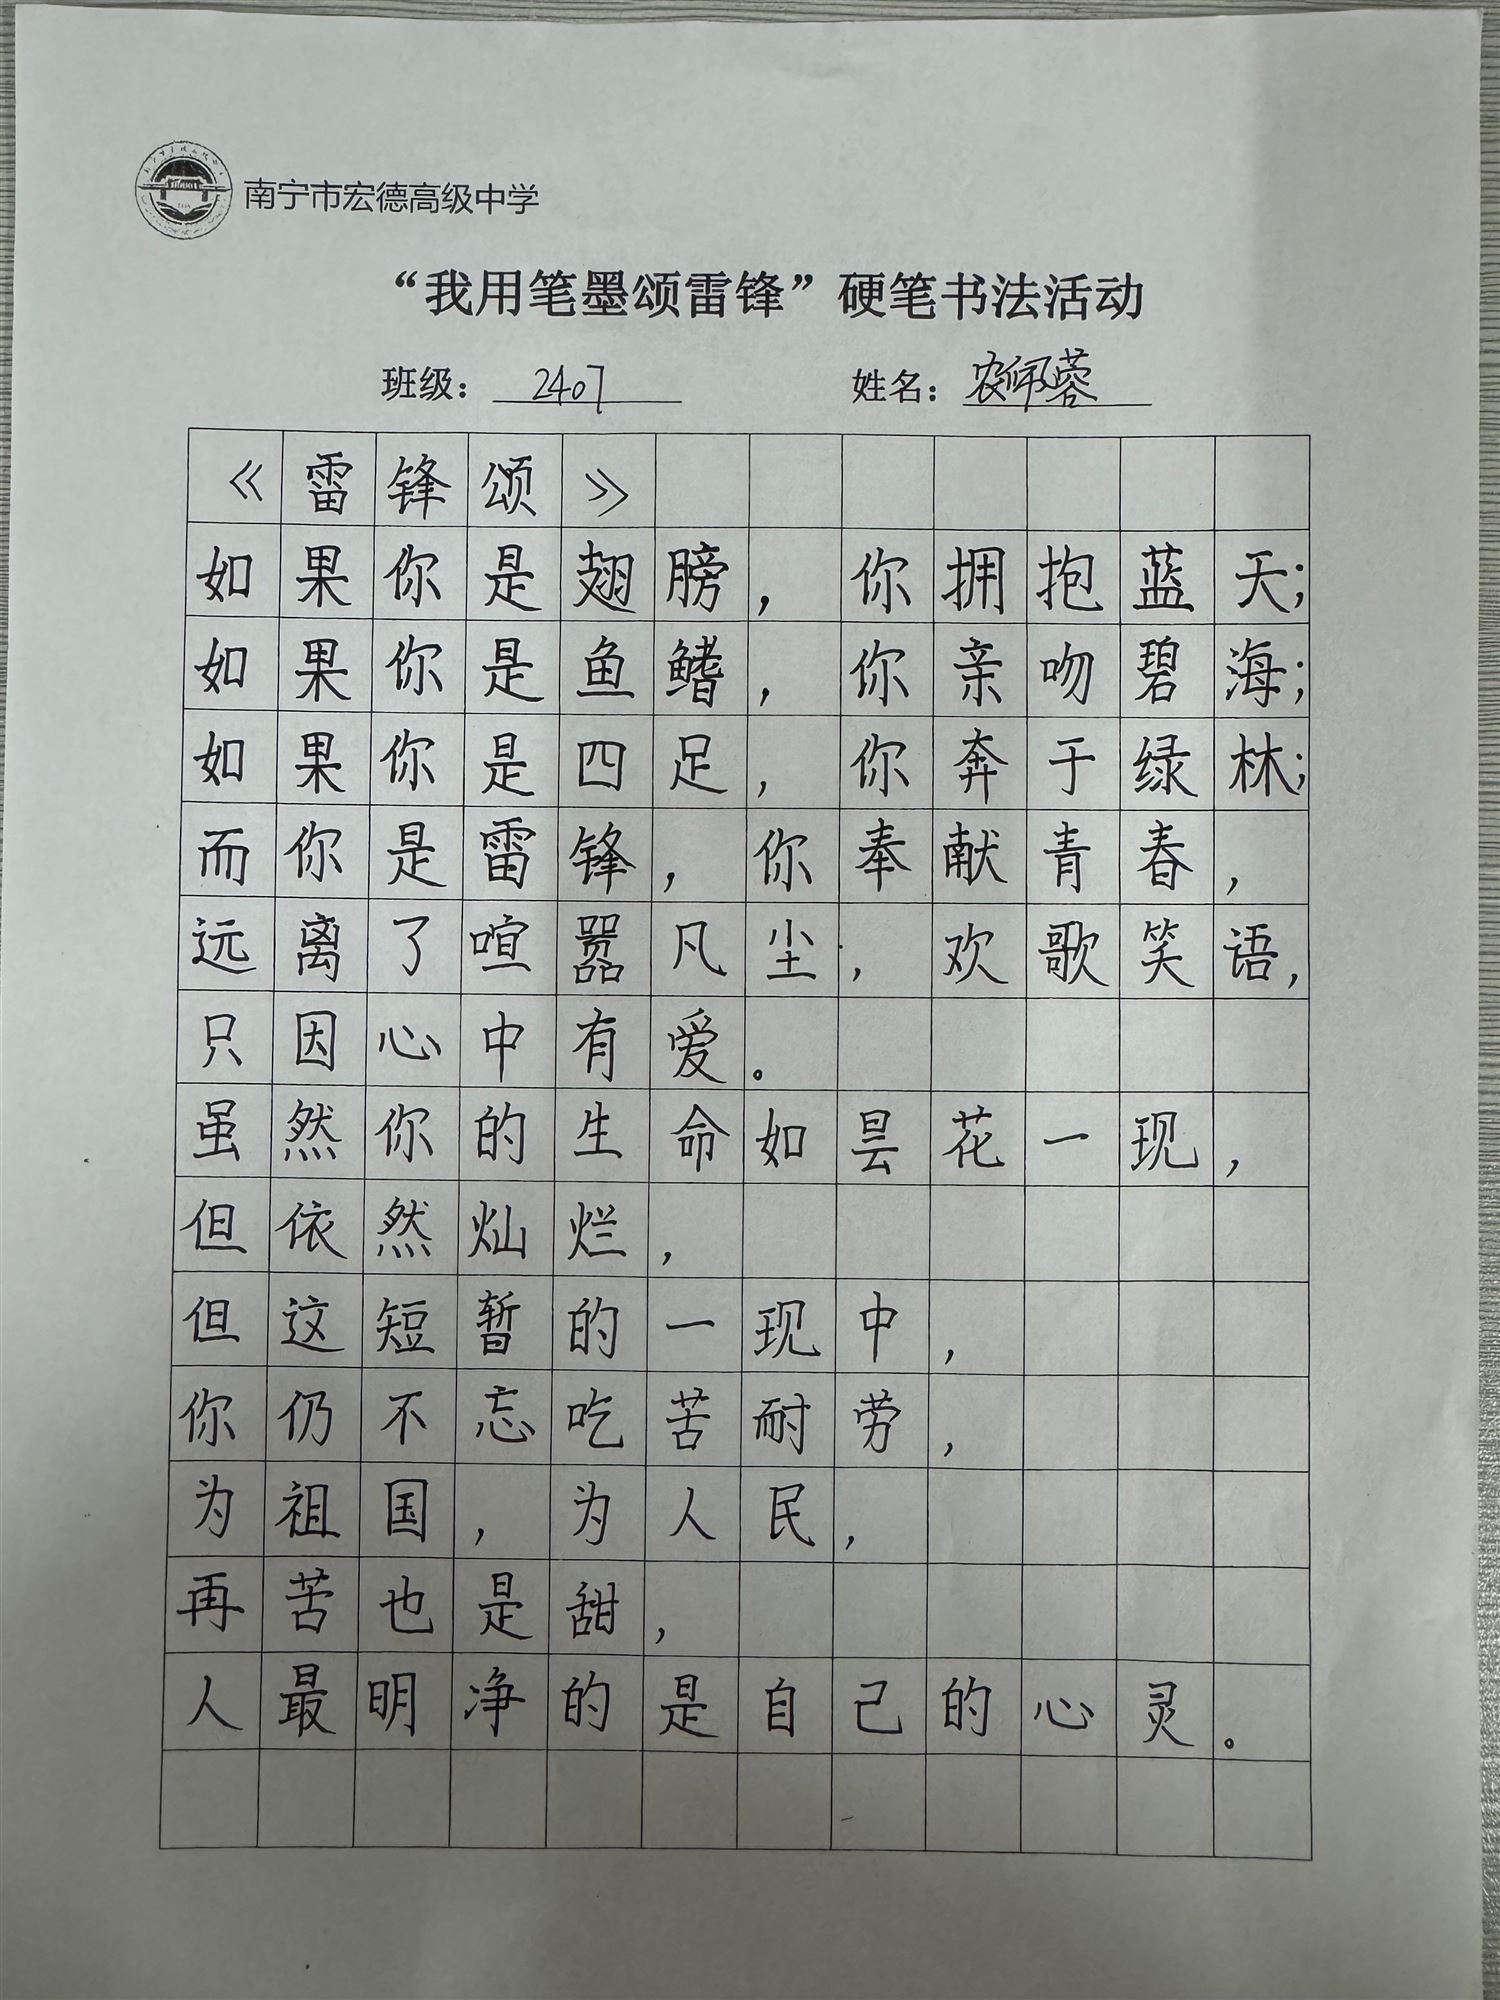 南宁市宏德高级中学
“我用笔墨颂雷锋”硬笔书法活动
班级：2407 姓名：农佩蓉
《雷锋颂》
如果你是翅膀，你拥抱蓝天；
如果你是鱼鳍，你亲吻碧海；
如果你是四足，你奔于绿林；
而你是雷锋，你奉献青春，
远离了喧嚣凡尘，欢歌笑语，
只因心中有爱。
虽然你的生命如昙花一现，
但依然灿烂，
但这短暂的一现中，
你仍不忘吃苦耐劳，
为祖国，为人民，
再苦也是甜，
人最明净的是自己的心灵。